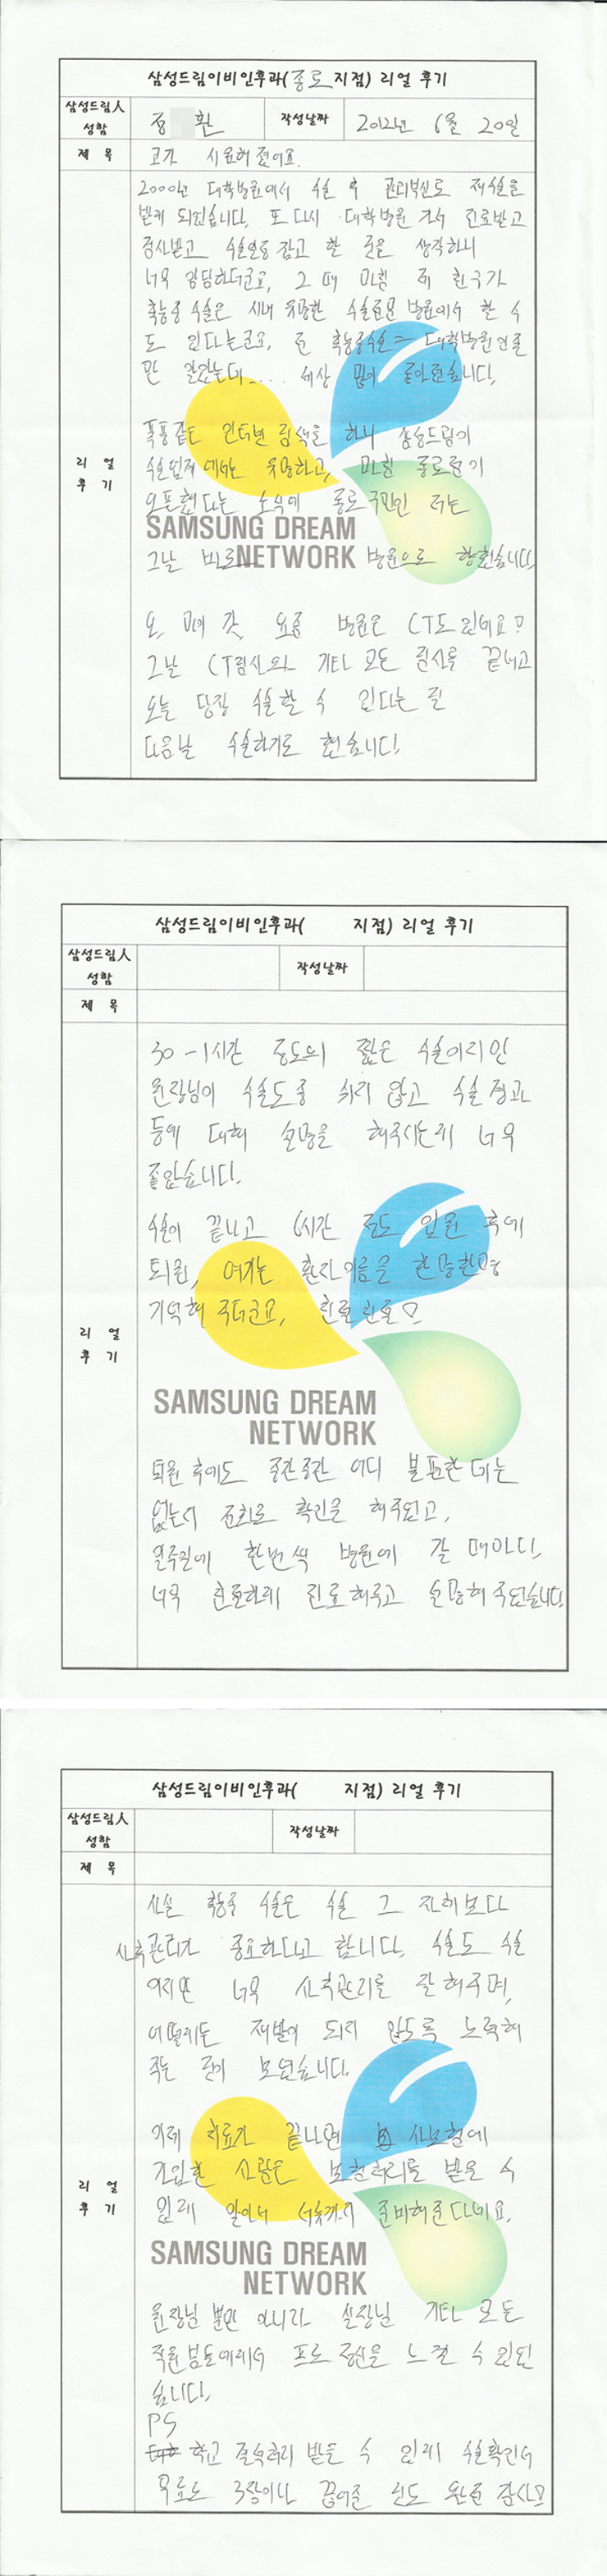 삼성드림이비인후과(종로 지점) 리얼 후기
삼성드림人 성함
정 환
작성날짜
2012년 6월 20일
제 목
코가 시원해졌어요.
리 얼 후 기
2000년 대학병원에서 수술 후 관리부실로 재수술을
받게 되었습니다. 또 다시 대학병원 가서 진료받고
검사받고 수술일정 잡고 할 것을 생각하니
너무 갑갑하더군요, 그 때 마침 제 친구가
축농증 수술은 시내 유명한 수술전문 병원에서 할 수
도 있다는군요, 전 축농증수술 = 대학병원인줄
만 알았는데.... 세상 많이 좋아졌습니다.
폭풍같은 인터넷 검색을 하니 삼성드림이
수술업계에서는 유명하고, 마침 종로점이
오픈했다는 소식에 종로구민인 저는
그날 바로 병원으로 향했습니다.
SAMSUNG DREAM
NETWORK
오, 마이 갓, 요즘 병원은 CT도 있네요?
그날 CT검사와 기타 모든 검사를 끝내고
오늘 당장 수술할 수 있다는 걸
다음날 수술하기로 했습니다!
삼성드림이비인후과( 지점) 리얼 후기
삼성드림人 성함
작성날짜
제 목
리 얼 후 기
30-1시간 정도의 짧은 수술이지만
원장님이 수술도중 쉬지 않고 수술 경과
등에 대해 설명을 해주시는게 너무
좋았습니다.
수술이 끝나고 6시간 정도 입원 후에
퇴원, 여기는 환자이름을 한명한명
기억해 주더군요, 친절친절♡
SAMSUNG DREAM
NETWORK
퇴원 후에도 중간중간 어디 불편한 데는
없는지 전화로 확인을 해주었고,
일주일에 한번씩 병원에 갈 때마다,
너무 친절하게 진료해주고 설명해 주었습니다.
삼성드림이비인후과( 지점) 리얼 후기
삼성드림人 성함
작성날짜
제 목
리 얼 후 기
사실 축농증 수술은 수술 그 자체보다
사후관리가 중요하다고 합니다. 수술도 수술
이지만 너무 사후관리를 잘 해주며,
어떻게든 재발이 되지 않도록 노력해
주는 것이 보였습니다.
이제 치료가 끝나면 사보험에
가입한 사람은 보험처리를 받을 수
있게 알아서 서류까지 준비해준다네요.
SAMSUNG DREAM
NETWORK
원장님 뿐만 아니라 실장님 기타 모든
직원분들에게서 프로 정신을 느낄 수 있었
습니다.
PS
학교 결석처리 받을 수 있게 수술확인서
무료로 3장이나 끊어준 것도 완전 감사♡